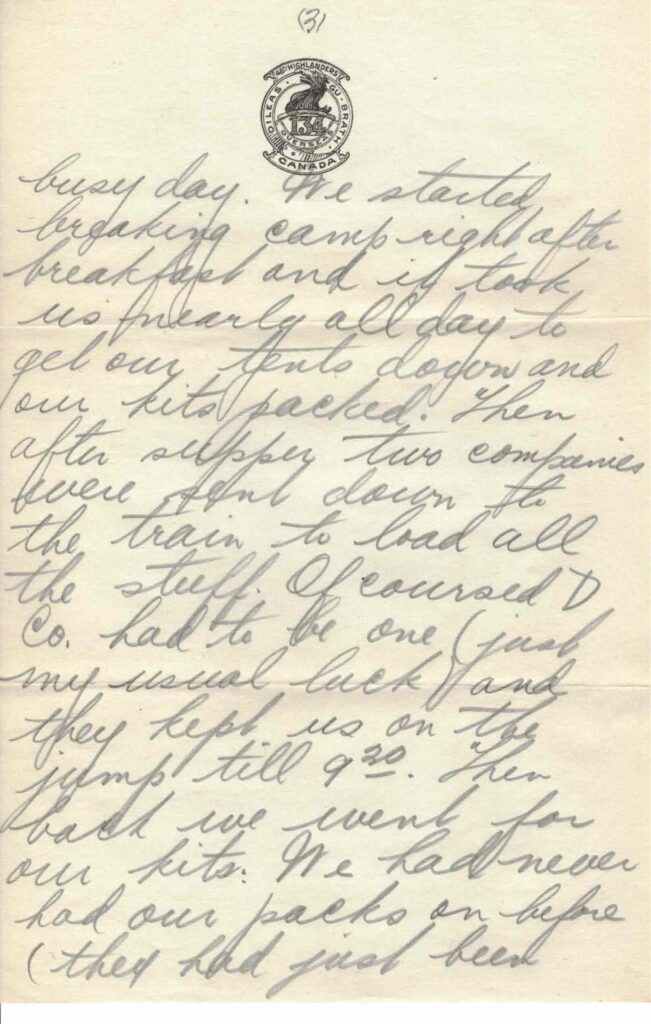 (3)
48TH HIGHLANDERS
DILEAS GU BRATH
134
OVERSEAS
CANADA
busy day. We started
breaking camp right after
breakfast and it took
us nearly all day to
get our tents down and
our kits packed. Then
after supper two companies
were sent down to
the train to load all
the stuff. Of coursed D
Co. had to be one (just
my usual luck) and
they kept us on the
jump till 9 30. Then
back we went for
our kits. We had never
had our packs on before
(they had just been